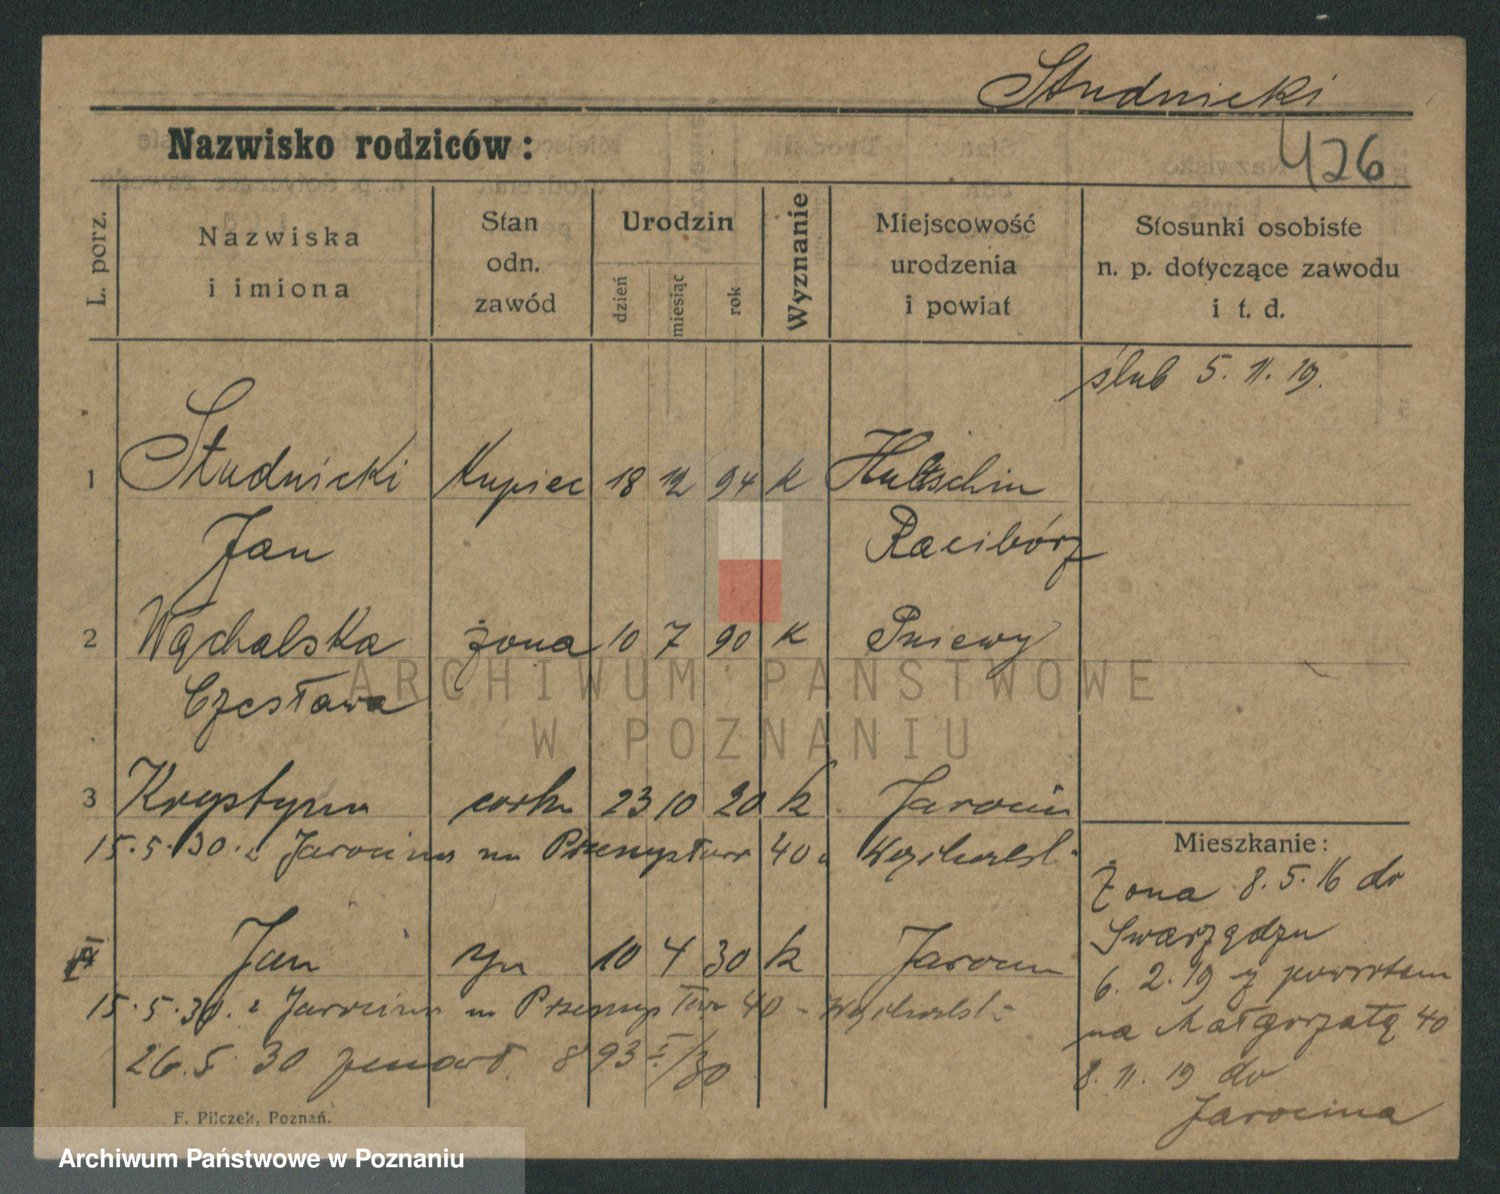 Studnicki
Nazwisko rodziców:
426
L. porz.
Nazwiska
i imiona
Stan
odn.
zawód
Urodzin
dzień
miesiąc
rok
Wyznanie
Miejscowość
urodzenia
i powiat
Stosunki osobiste
n. p. dotyczące zawodu
i t. d.
ślub 5. 11. 19.
1 Studnicki Kupiec 18 12 94 K Hultschin
Jan Racibórz
2 Wąchalska żona 10 7 90 K Pniewy
Czesława
ARCHIWUM PAŃSTWOWE
W POZNANIU
3 Krystyna córka 23 10 20 k Jarocin
15.5.30. z Jarocina na Przemysłowa 40 u Wąchalski
Jan syn 10 4 30 k Jarocin
15.5.30. z Jarocina na Przemysłowa 40 - Wąchalski
26.5 30 893 I/30
Mieszkanie:
Żona 8.5.16 do
Swarzędzu
6.2.19 z powrotem
na Małgorzatą 40
8.11.19 do
Jarocina
F. Pilczek, Poznań.
Archiwum Państwowe w Poznaniu